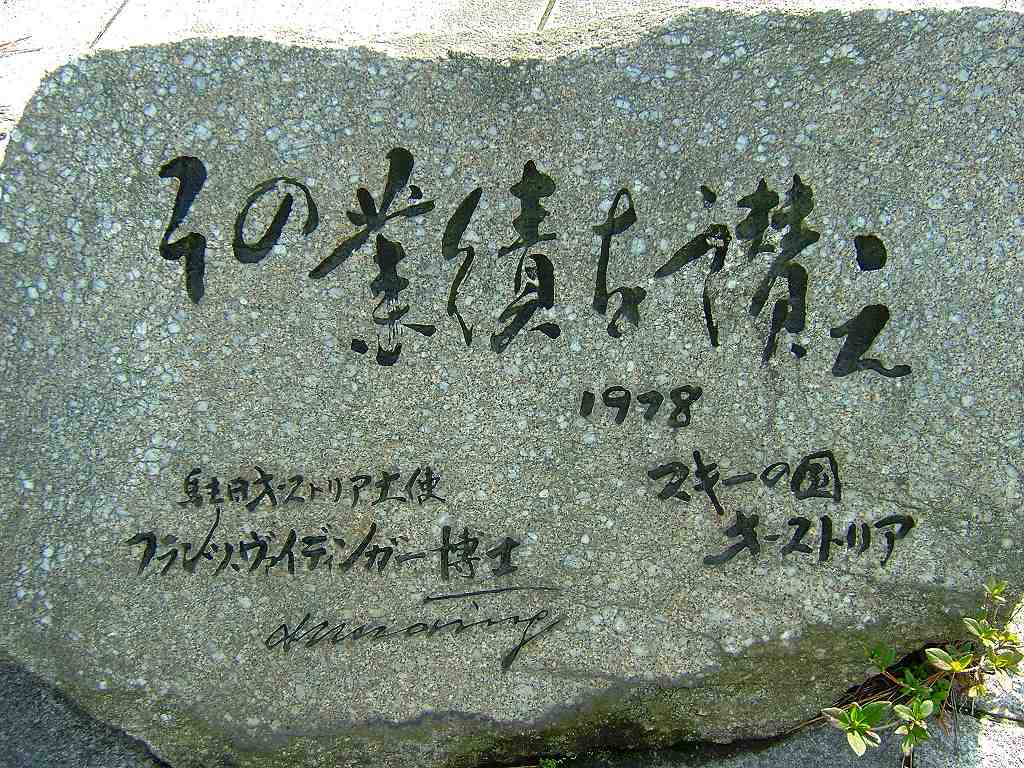 その業績を讃え
1978
スキーの国
オーストリア
駐日オーストリア大使
フランツ、ヴァイディンガー博士